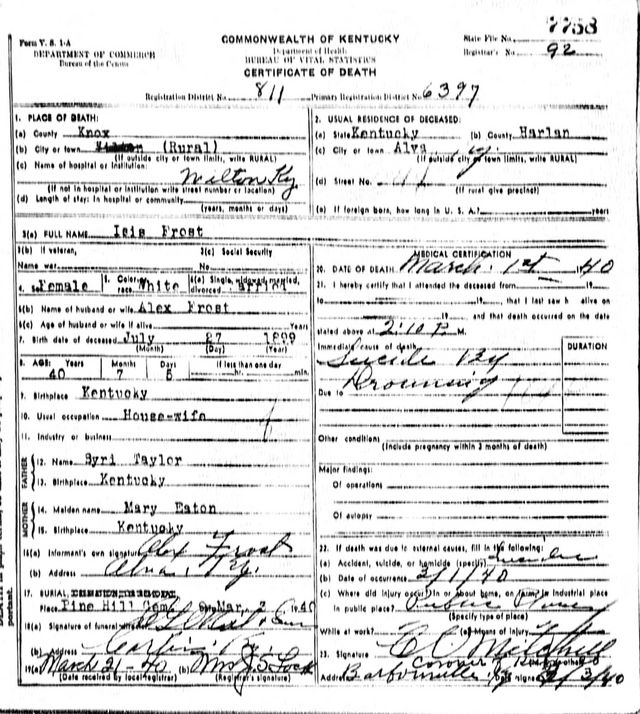 7758
Form V. S. 1-A
DEPARTMENT OF COMMERCE
Bureau of the Census
COMMONWEALTH OF KENTUCKY
Department of Health
BUREAU OF VITAL STATISTICS
CERTIFICATE OF DEATH
State File No.
Registrar's No. 92
Registration District No. 811 Primary Registration District No. 6397
1. PLACE OF DEATH:
(a) County Knox
(b) City or town (Rural)
(If outside city or town limits, write RURAL)
(c) Name of hospital or institution:
Wilton Ky
(If not in hospital or institution write street number or location)
(d) Length of stay: In hospital or community
(years, months or days)
2. USUAL RESIDENCE OF DECEASED:
(a) State Kentucky (b) County Harlan
(c) City or town Alva Ky.
(If outside city or town limits, write RURAL)
(d) Street No.
(If rural give precinct)
(e) If foreign born, how long in U. S. A.? years
3(a) FULL NAME Isis Frost
3(b) If veteran,
Name war
3(c) Social Security
No.
4. Sex Female 5. Color or race White 6(a) Single, widowed, married, divorced
6(b) Name of husband or wife Alex Frost
6(c) Age of husband or wife if alive Years
7. Birth date of deceased July 27 1899
(Month) (Day) (Year)
8. AGE: Years Months Days If less than one day
40 7 5 hr. min.
9. Birthplace Kentucky
10. Usual occupation House-wife
11. Industry or business
FATHER
12. Name Syri Taylor
13. Birthplace Kentucky
MOTHER
14. Maiden name Mary Eaton
15. Birthplace Kentucky
16(a) Informant's own signature Alex Frost
(b) Address Alva, Ky.
17. BURIAL,
Place Pine Hill Cem. Mar. 2 1940
18(a) Signature of funeral director
(b) Address Corbin Ky
19(a) March 21-40 (b) Mrs J. S. Lock
(Date received by local registrar) (Registrar's signature)
MEDICAL CERTIFICATION
20. DATE OF DEATH March 1st 1940
21. I hereby certify that I attended the deceased from 19
to 19, that I last saw h alive on
19 and that death occurred on the date
stated above at 2:10 P. M.
Immediate cause of death
DURATION
Suicide By
Drowning
Due to
Other conditions
(Include pregnancy within 3 months of death)
Major findings:
Of operations
Of autopsy
22. If death was due to external causes, fill in the following:
(a) Accident, suicide, or homicide (specify)
(b) Date of occurrence 3/1/40
(c) Where did injury occur? In or about home, on farm, in industrial place
in public place?
(Specify type of place)
While at work? (e) Means of injury
23. Signature C C Mitchell
Coroner
Address Barbourville Ky Date signed